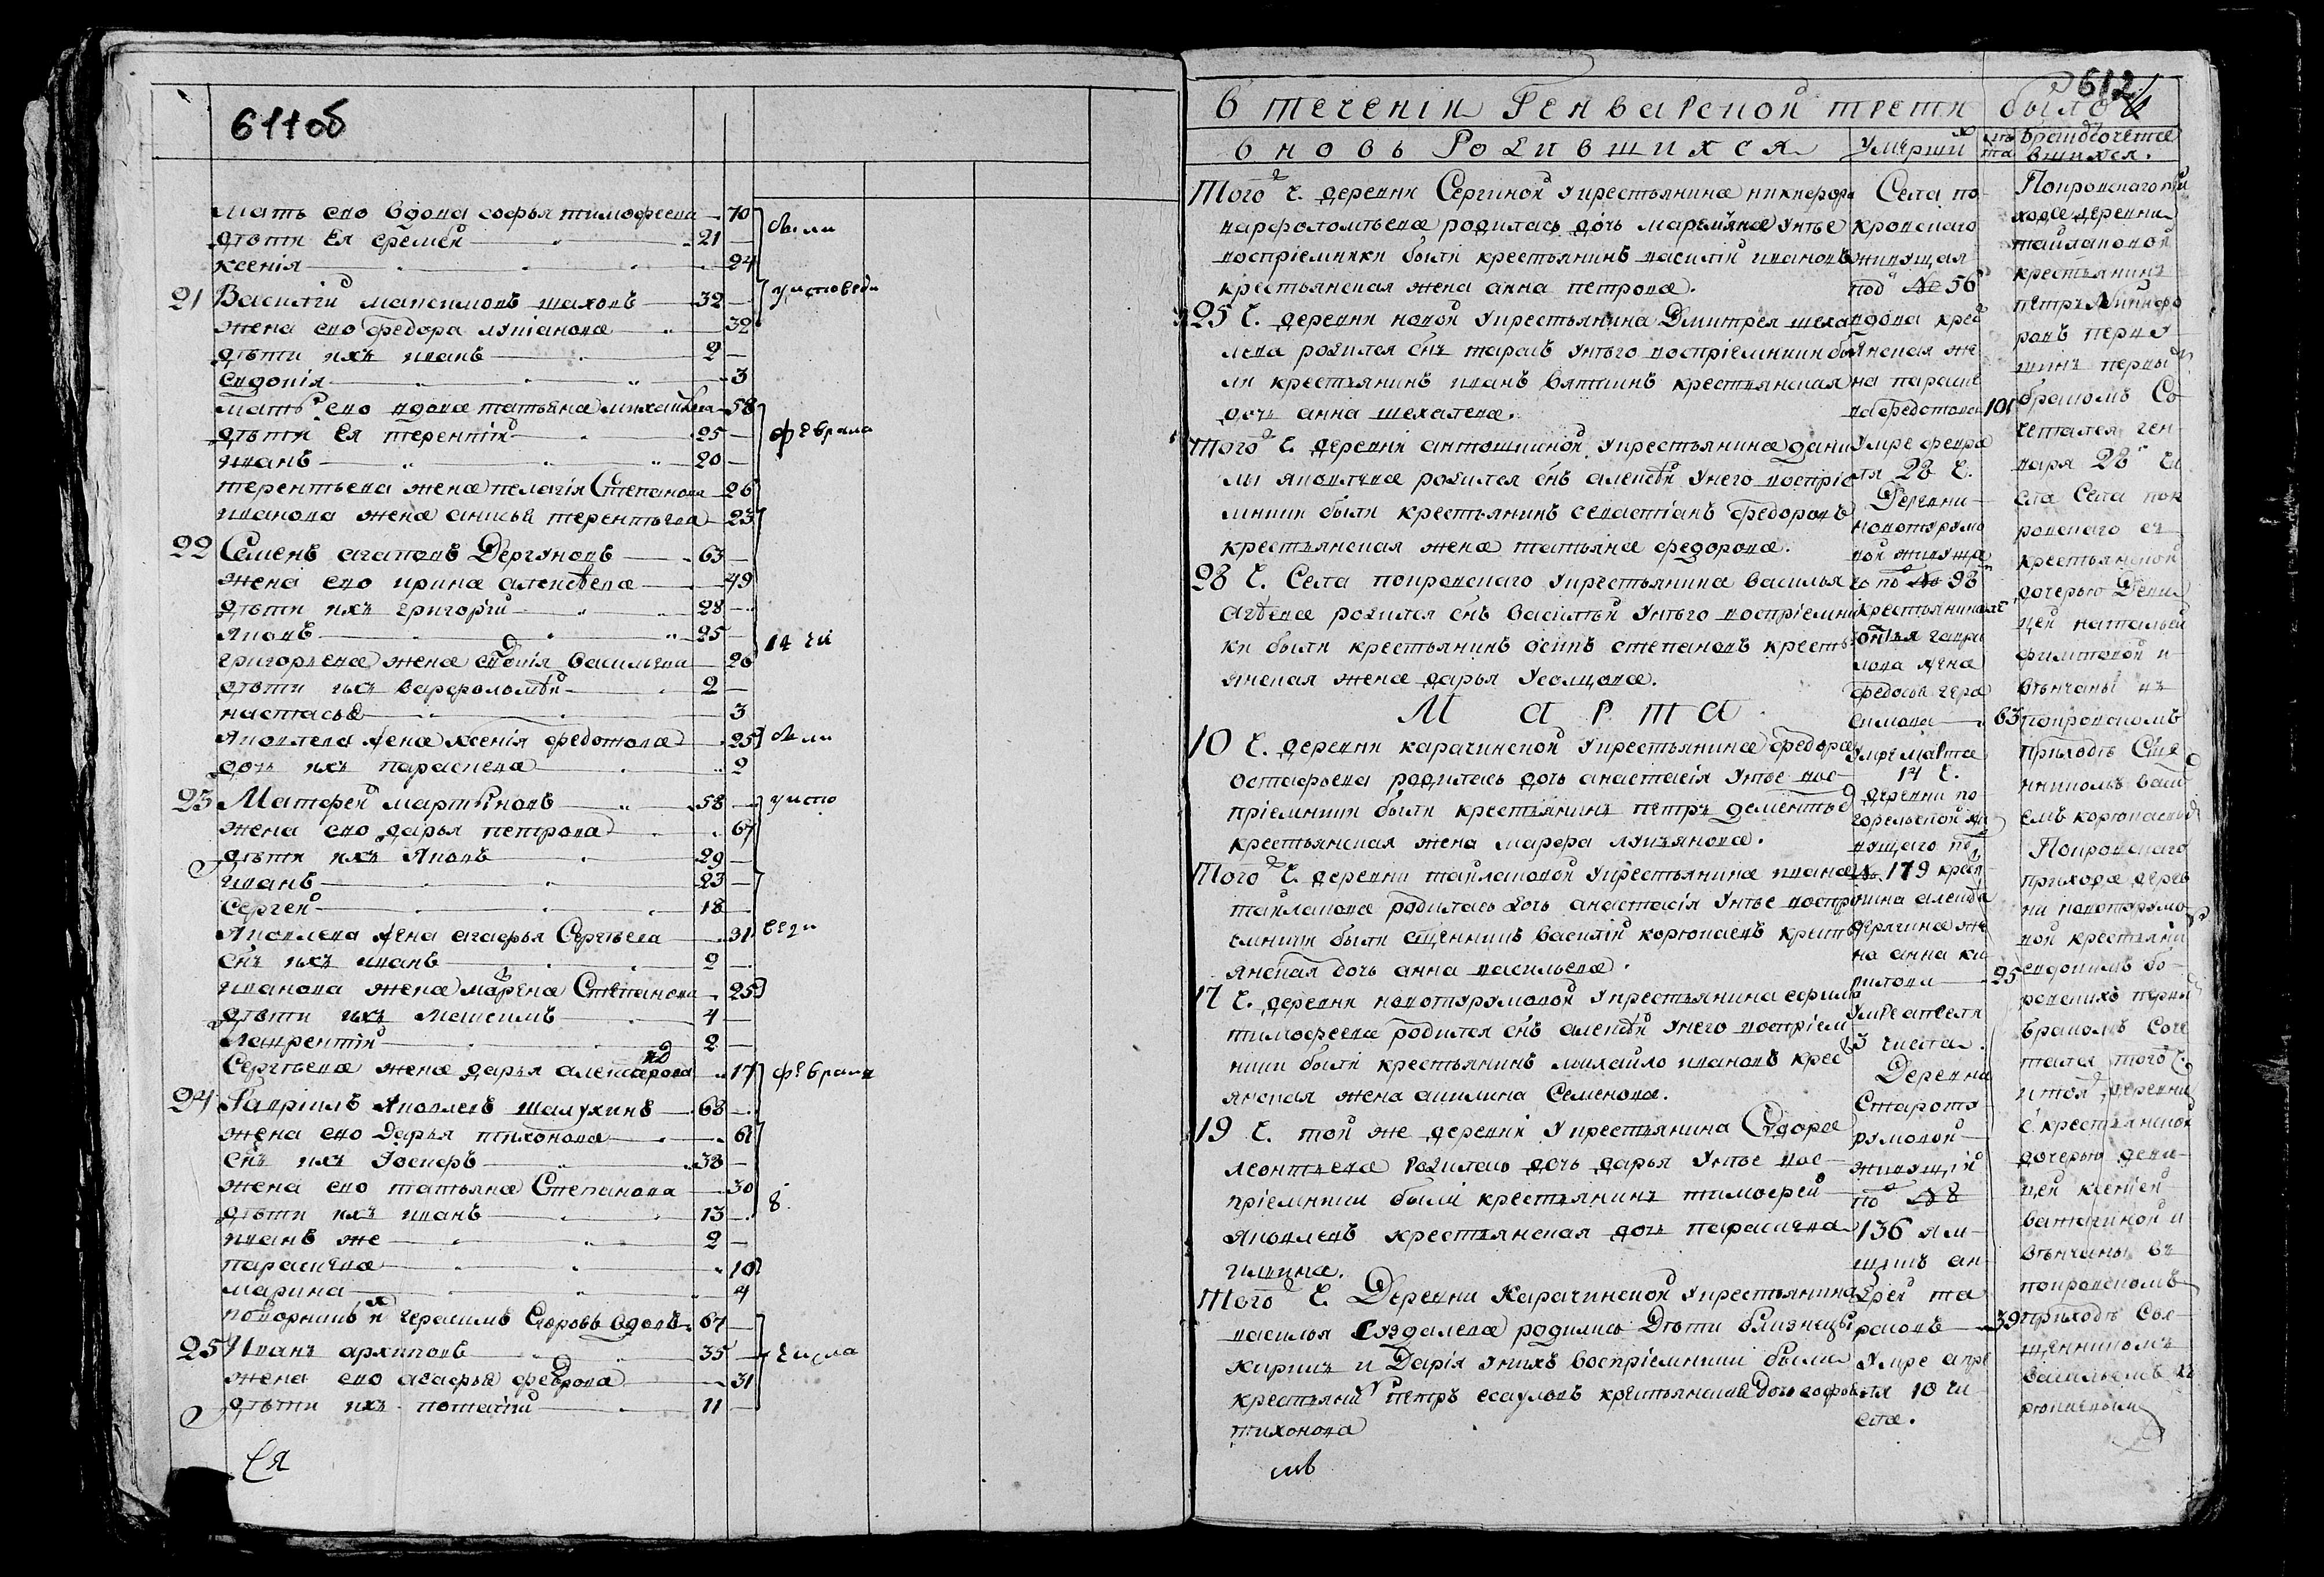 611об
мать ево вдова софья тимофеева 70
дѣти ея еремей 21
ксенія 24
были
21 Василій максимовъ шаховъ 32
у исповеди
жена ево федора лукіанова 32
дѣти ихъ иванъ 2
евдокія 3
мать ево вдова татьяна михайлова 58
дѣти ея терентій 25
февраля
иванъ 20
терентьева жена пелагія Степанова 26
иванова жена анисья терентьева 23
22 Семенъ агаповъ Дергуновъ 63
жена ево ирина алексѣева 49
дѣти ихъ григорій 28
яковъ 25
14 чи
григорьева жена евдокія васильева 26
дѣти ихъ варфоломѣй 2
настасья 3
яковлева жена ксенія федотова 25
были
дочь ихъ парасковья 2
23 Матфей мартыновъ 58
у испо
жена ево дарья петрова 67
дѣти ихъ яковъ 29
иванъ 23
сергей 18
яковлева жена агафья Сергѣева 31
снъ ихъ иванъ 2
иванова жена марѳена Степанова 25
дѣти ихъ максимъ 4
лаврентій 2
Сергѣева жена дарья александрова 17
февраля
24 Гавріилъ яковлевъ шалухинъ 68
жена ево Дарья тихонова 61
снъ ихъ Іосифъ 38
жена ево татьяна Степанова 30
8
дѣти ихъ иванъ 13
иванъ же 2
парасковья 10
марина 4
подворникъ ихъ герасимъ Егоровъ вдовъ 67
25 Иванъ архиповъ 35
числа
жена ево агафья федорова 31
дѣти ихъ потапій 11
Ев
612
В теченіи Генварской трети было
вновь Родившихся
Умерши
лѣта
бракосочетавшихся.
Того ч. деревни Сергиной у крестьянина никифора
варфоломѣева родилась дочь маремьяна у нее
воспріемники были крестьянинъ василій ивановъ
крестьянская жена анна петрова.
25 ч. деревни новой у крестьянина Дмитрея шеха
лева родился снъ тарасъ у него воспріемники бы
ли крестьянинъ иванъ вяткинъ крестьянская
дочь анна шехалева.
Того ч. деревни антошкиной у крестьянина дани
лы яковлева родился снъ алексѣй у него воспріе
мники были крестьянинъ севастіанъ федоровъ
крестьянская жена татьяна федорова.
28 ч. Села покровскаго у крестьянина василья
агѣева родился снъ василѣй у него воспріемни
ки были крестьянинъ осипъ степановъ кресть
янская жена дарья усолцова.
Марта
10 ч. деревни карачинской у крестьянина федора
остафьева родилась дочь анастасія у нее вос
пріемники были крестьянинъ петръ дементьев
крестьянская жена марфа лукьянова.
Того ч. деревни тайлаковой у крестьянина ивана
тайлакова родилась дочь анастасія у нее воспрі
емники были сщенникъ василій корюкаевъ кресть
янская дочь анна васильева.
17 ч. деревни новотурумовой у крестьянина ефима
тимофеева родился снъ алексѣй у него воспріем
ники были крестьянинъ михайло ивановъ крес
янская жена акилина Семенова.
19 ч. той же деревни у крестьянина Сидора
леонтьева родилась дочь дарья у нее вос
пріемники были крестьянинъ тимофей
яковлевъ крестьянская дочь парасковья
гилина.
Того ч. Деревни карачинской у крестьянина
василья суздалева родились Дѣти близнецы
кирикъ и Дарія у нихъ воспріемники были
крестьянин петръ есауловъ крестьянская дочь софья
тихонова
Села по
кровскаго
живущая
под № 56
вдова крес
янская же
на параске
ва федотова 101
умре февра
ля 28 ч.
Деревни
новотурумо
вой живуща
го по № 98
крестьянина
гаври
лова жена
федосья гера
симова 63
умре марта
14 ч.
деревни по
горельской жи
вущаго по
№ 179 крес
нина алексѣя
жена анна ка
рпилова 25
умре апреля
3 числа.
Деревни
Староту
румовой
живущій
по № 8
136 ям
щикъ ан
дрей та
расовъ 39
умре апре
ля 10 чи
сла.
Покровскаго при
хода деревни
тайлаковой
крестьянинъ
петръ Никифо
ровъ
первы
бракомъ Со
четался ген
варя 28 чи
сла Села пок
ровскаго съ
крестьянской
дочерью Деви
цей натальей
филиповой и
вѣнчаны въ
покровскомъ
приходѣ Свя
нникомъ васи
емъ корюкаевы
Покровскаго
прихода дерев
ни новотурумо
вой крестьяни
евдокимъ бо
ровскихъ первы
бракомъ соче
тался того ч.
и той деревни
с крестьянской
дочерью деви
цей ксеніей
ватагиной и
вѣнчаны въ
покровскомъ
приходѣ Свя
щенникомъ
васильемъ ко
рюкаевым